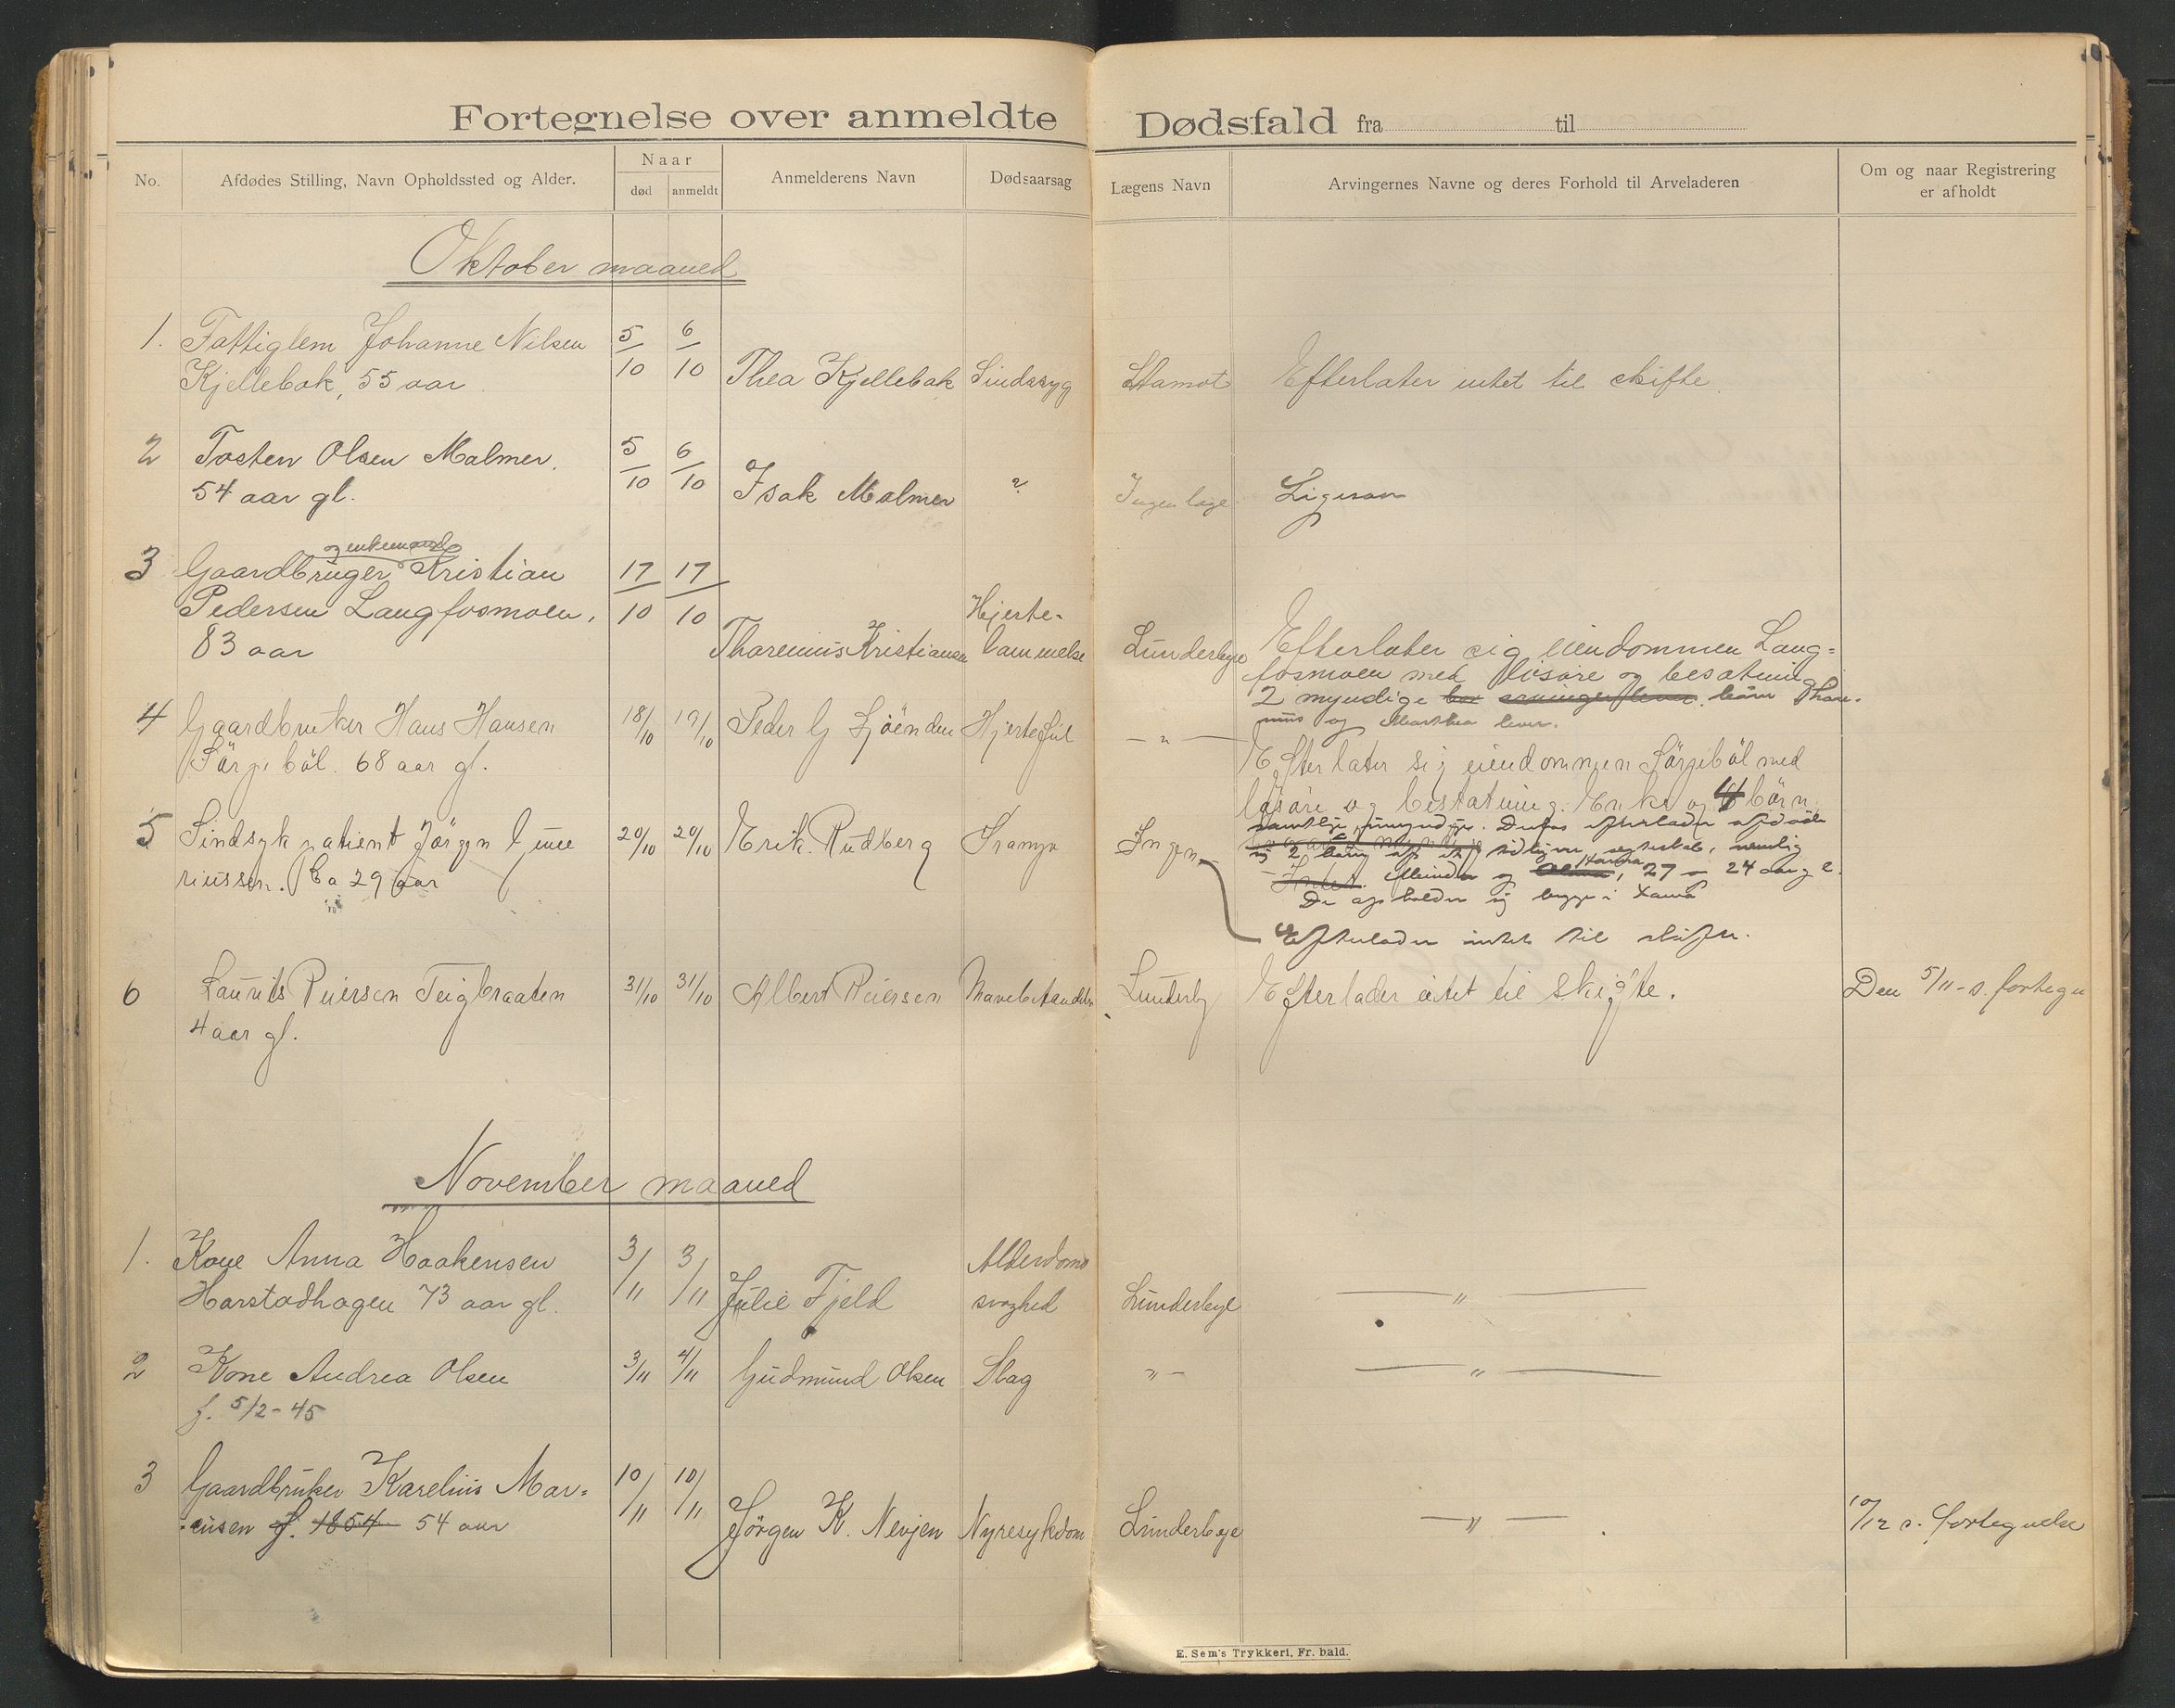 Fortegnelse over anmeldte Dødsfald fra til
No.
Afdødes Stilling, Navn Opholdssted og Alder.
Naar
død
anmeldt
Anmelderens Navn
Dødsaarsag
Lægens Navn
Arvingernes Navne og deres Forhold til Arveladeren
Om og naar Registrering
er afholdt
Oktober maaned
1. Fattiglem Johanne Nilsen 5/10 6/10
Kjellebak, 55 aar Thea Kjellebak Sindssyg Stamot Efterlater intet til skifte.
2 Tosten Olsen Malmer. 5/10 6/10
54 aar gl. Isak Malmer ? Ingen læge Ligesaa
og enkemand
3 Gaardbruger Kristian 17/10 17/10
Pedersen Langfosmoen, Hjerte-
83 aar Tharenius Kristiansen lammelse Lunderbye Efterlater sig eiendommen Lang=
fosmoen med løsøre og besætning
2 myndige børn Thare-
nius og Marthea lever.
4 Gaardbruker Hans Hansen 18/10 19/10 Peder G Sjöenden Hjertefeil — " —
Sörgeböl. 68 aar gl. Efterlater sig eiendommen Sörgeböl med
lösöre og besætning. Enke og 4 börn
samtlige umyndige. Dertil efterlader afdöde
sig 2 børn af et tidligere egteskab, nemlig
Hanna
og 27 — 24 aar gl.
De opholder sig begge i
5 Sindsyk patient Jörgen Gune 20/10 20/10 Erik Rudberg Krampe Ingen
riussen. Ca 29 aar
Efterlader intet til skifte.
6 Laurits Reiersen Teigbraaten 31/10 31/10 Albert Reiersen Lunderby Efterlader intet til skifte. Den 5/11 - s. fortegn
4 aar gl.
November maaned
1. Kone Anna Haakensen 3/11 3/11 Alderdoms
Harstadhagen 73 aar gl. Julie Fjeld svaghed Lunderbye — " —
2 Kone Andrea Olsen 3/11 4/11 Gudmund Olsen Slag " - — " —
f. 5/2-45
3 Gaardbruker Karelius Mar= 10/11 10/11
f. 1854 54 aar Jörgen K. Nevjen Nyresykdom Lunderbye — " — 10/12 s. fortegnelse
E. Sem's Trykkeri, Fr. hald.